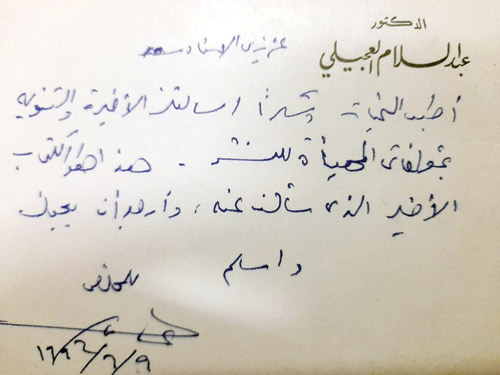 الدكتور
عبد السلام العجيلي
عزيزي الاستاذ
أطيب التحيات وشكراً لرسالتك الأخيرة والتنويه
بمؤلفاتي المهيأة للنشر . هذا هو الكتاب
الأخير الذي سألت عنه ، وأرجو أن يعجبك
واسلم
المخلص
١٩٩٦/٦/٩